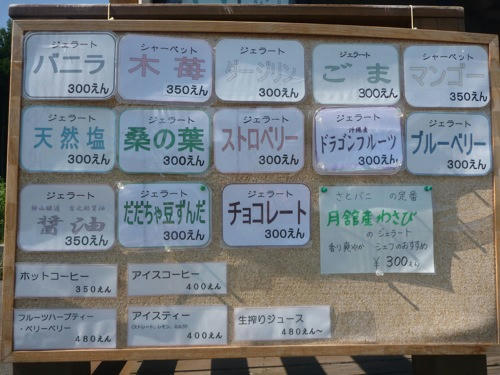 ジェラート
バニラ
300えん
シャーベット
木苺
350えん
ジェラート
ダージリン
300えん
ジェラート
ごま
300えん
シャーベット
マンゴー
350えん
ジェラート
天然塩
300えん
ジェラート
桑の葉
300えん
ジェラート
ストロベリー
300えん
ジェラート
沖縄産
ドラゴンフルーツ
300えん
ジェラート
ブルーベリー
300えん
ジェラート
醤油
350えん
ジェラート
だだちゃ豆ずんだ
300えん
ジェラート
チョコレート
300えん
さとバニ の定番
月舘産わさび
のジェラート
香り爽やか シェフのおすすめ
¥300えん
ホットコーヒー
350えん
アイスコーヒー
400えん
フルーツハーブティー
・ベリーベリー
480えん
アイスティー
(ストレート、レモン、ミルク)
400えん
生搾りジュース
480えん~